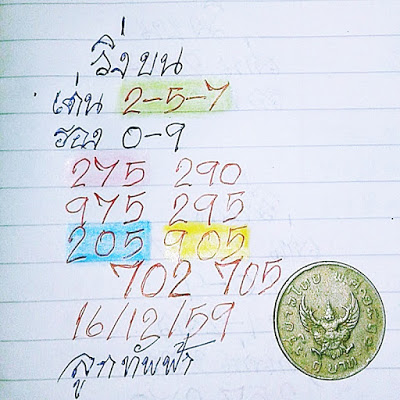 วิ่งบน
เด่น 2-5-7
รอง 0-9
275 290
975 295
205 905
702 705
16/12/59
ลูกทัพฟ้า